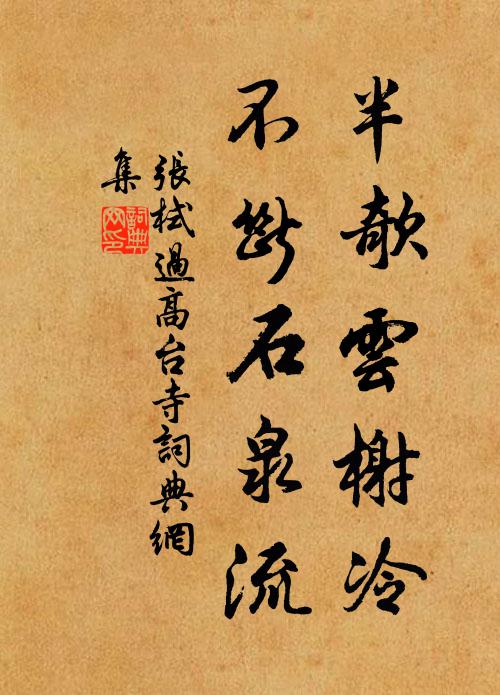 半欹雲榭冷
不斷石泉流
張栻過高台寺詞典網
集
詞典網印